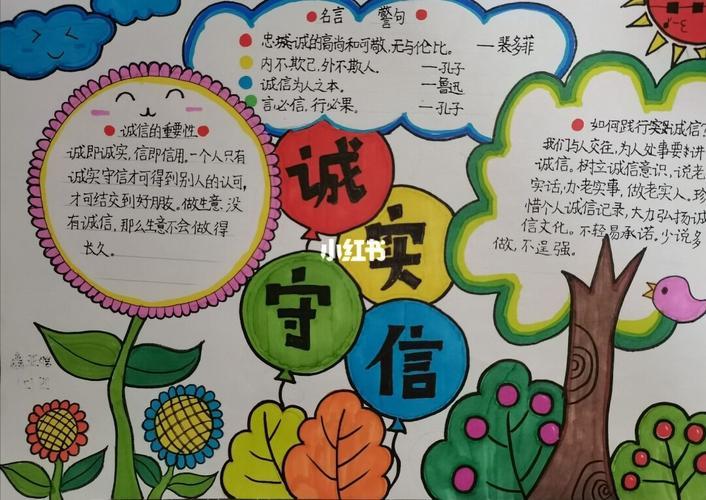 名言 警句
忠诚·诚的高尚和可敬,无与伦比。 —裴多菲
内不欺己,外不欺人。 —孔子
诚信为人之本。 —鲁迅
言必信,行必果。 —孔子
诚信的重要性
诚即诚实,信即信用。一个人只有
诚实守信才可得到别人的认可,
才可结交到好朋友。做生意,没
有诚信,那么生意不会做得
长久。
诚
实
守
信
小红书
如何践行实践诚信
我们与人交往,为人处事要讲
诚信。树立诚信意识,说老
实话,办老实事,做老实人。珍
惜个人诚信记录,大力弘扬诚
信文化。不轻易承诺。少说多
做,不逞强。